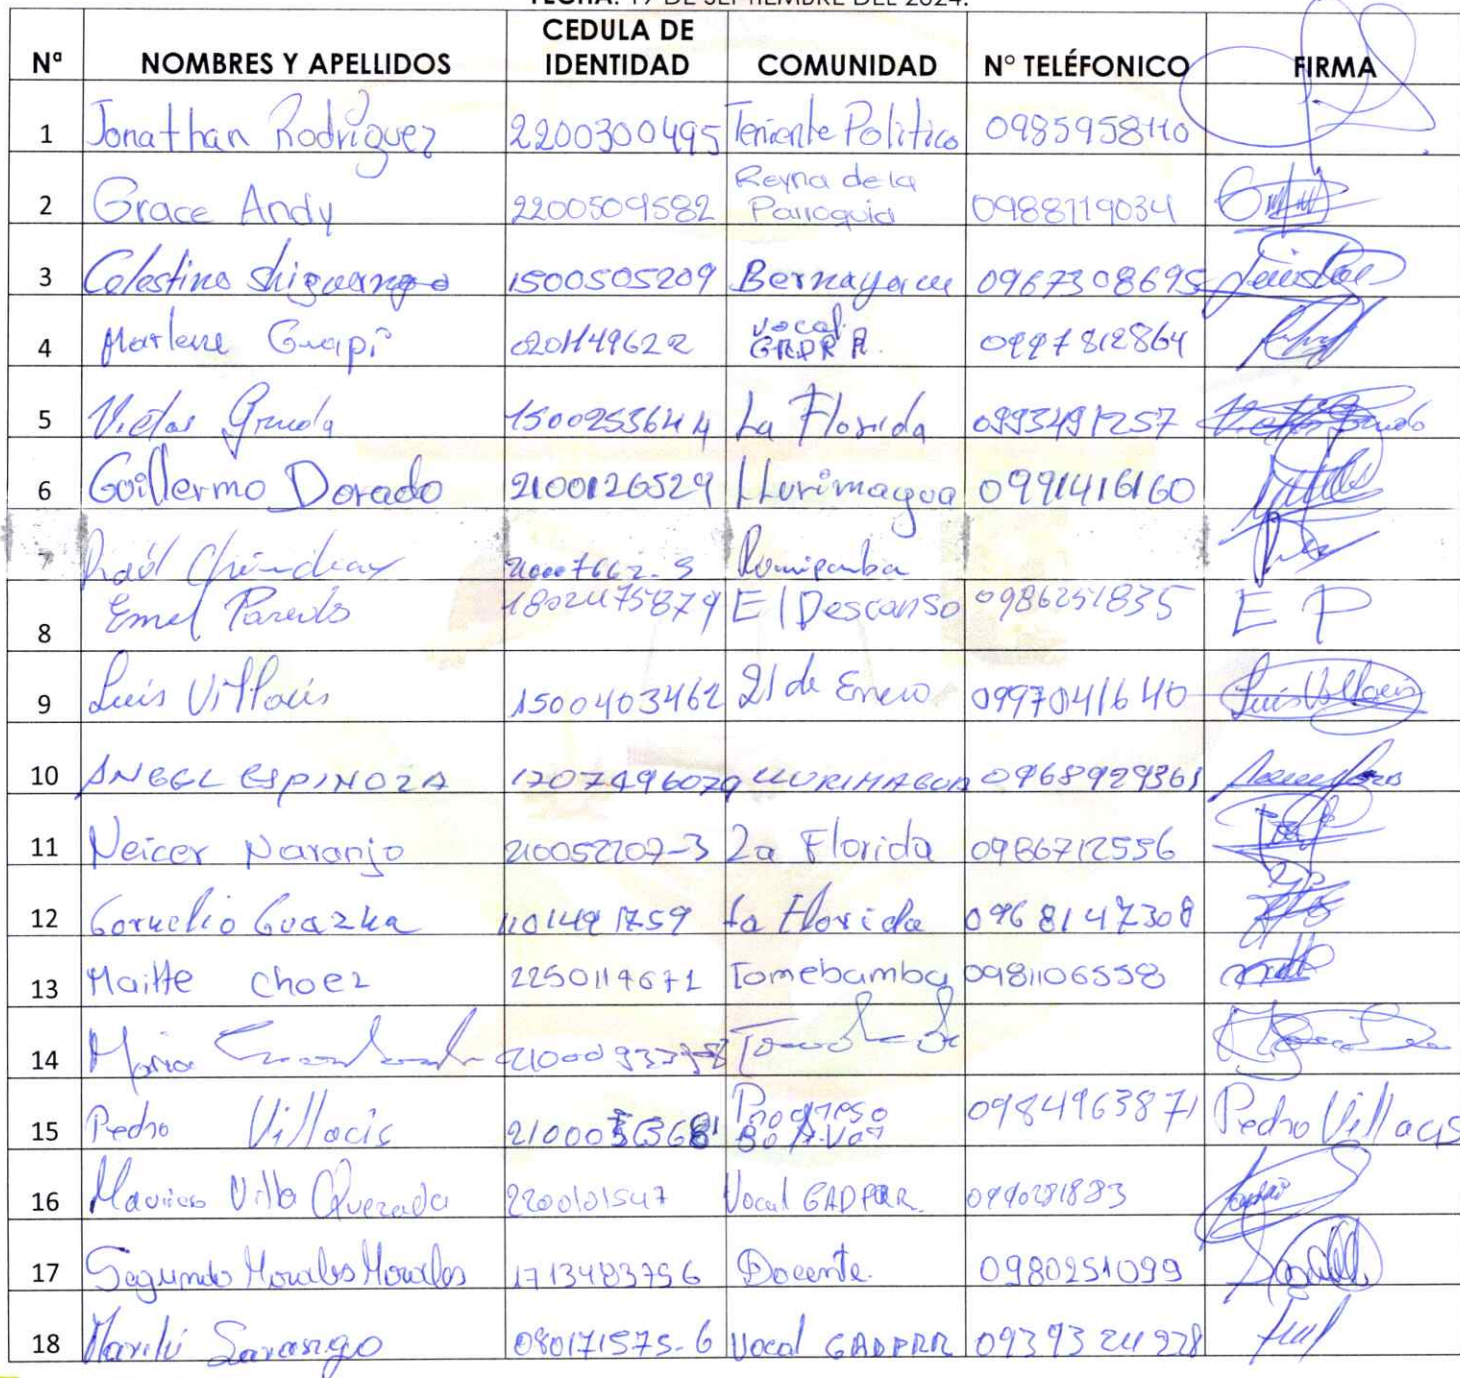 FECHA: 19 DE SEPTIEMBRE DEL 2024.
Nº NOMBRES Y APELLIDOS CEDULA DE IDENTIDAD COMUNIDAD Nº TELÉFONICO FIRMA
1 Jonathan Rodriguez 2200300495 Teniente Politico 0985958110
2 Grace Andy 2200509582 Reyna de la Parroquia 0988119034
3 Celestino Shiguango 1500505209 Bernayacu 0967308695
4 Marlene Guapi 0201149622 Vocal GADPR 0997812864
5 Victor Grueda 1500253644 La Florida 0993491257
6 Guillermo Dorado 2100126529 Llurimagua 0991416160
7 Raúl Rumipamba
8 Emel Paredes 1802475879 El Descanso 0986251835 E P
9 Luis Villacis 1500403462 21 de Enero 0997041640 Luis Villacis
10 ANGEL ESPINOZA 1707496079 LLURIMAGUA 0968929361
11 Neicer Naranjo 210052207-3 La Florida 0986712556
12 Cornelio Guazha 1101491759 La Florida 0968147308
13 Maitte choez 2250119671 Tomebamba 0981106558
14 Maria
15 Pedro Villacis Progreso 0984963871 Pedro Villacis
16 Mauricio Villa Quezada 2200101547 Vocal GADPRR. 0990281883
17 Segundo Morales Morales 1713483756 Docente. 0980251099
18 Marilú Sarango 080171575-6 Vocal GADPRR 0939324928